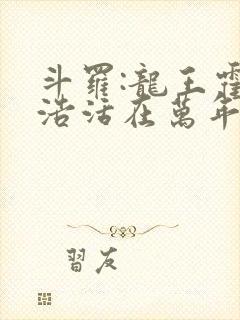 斗羅:龍王霍
浩活在萬年
習友